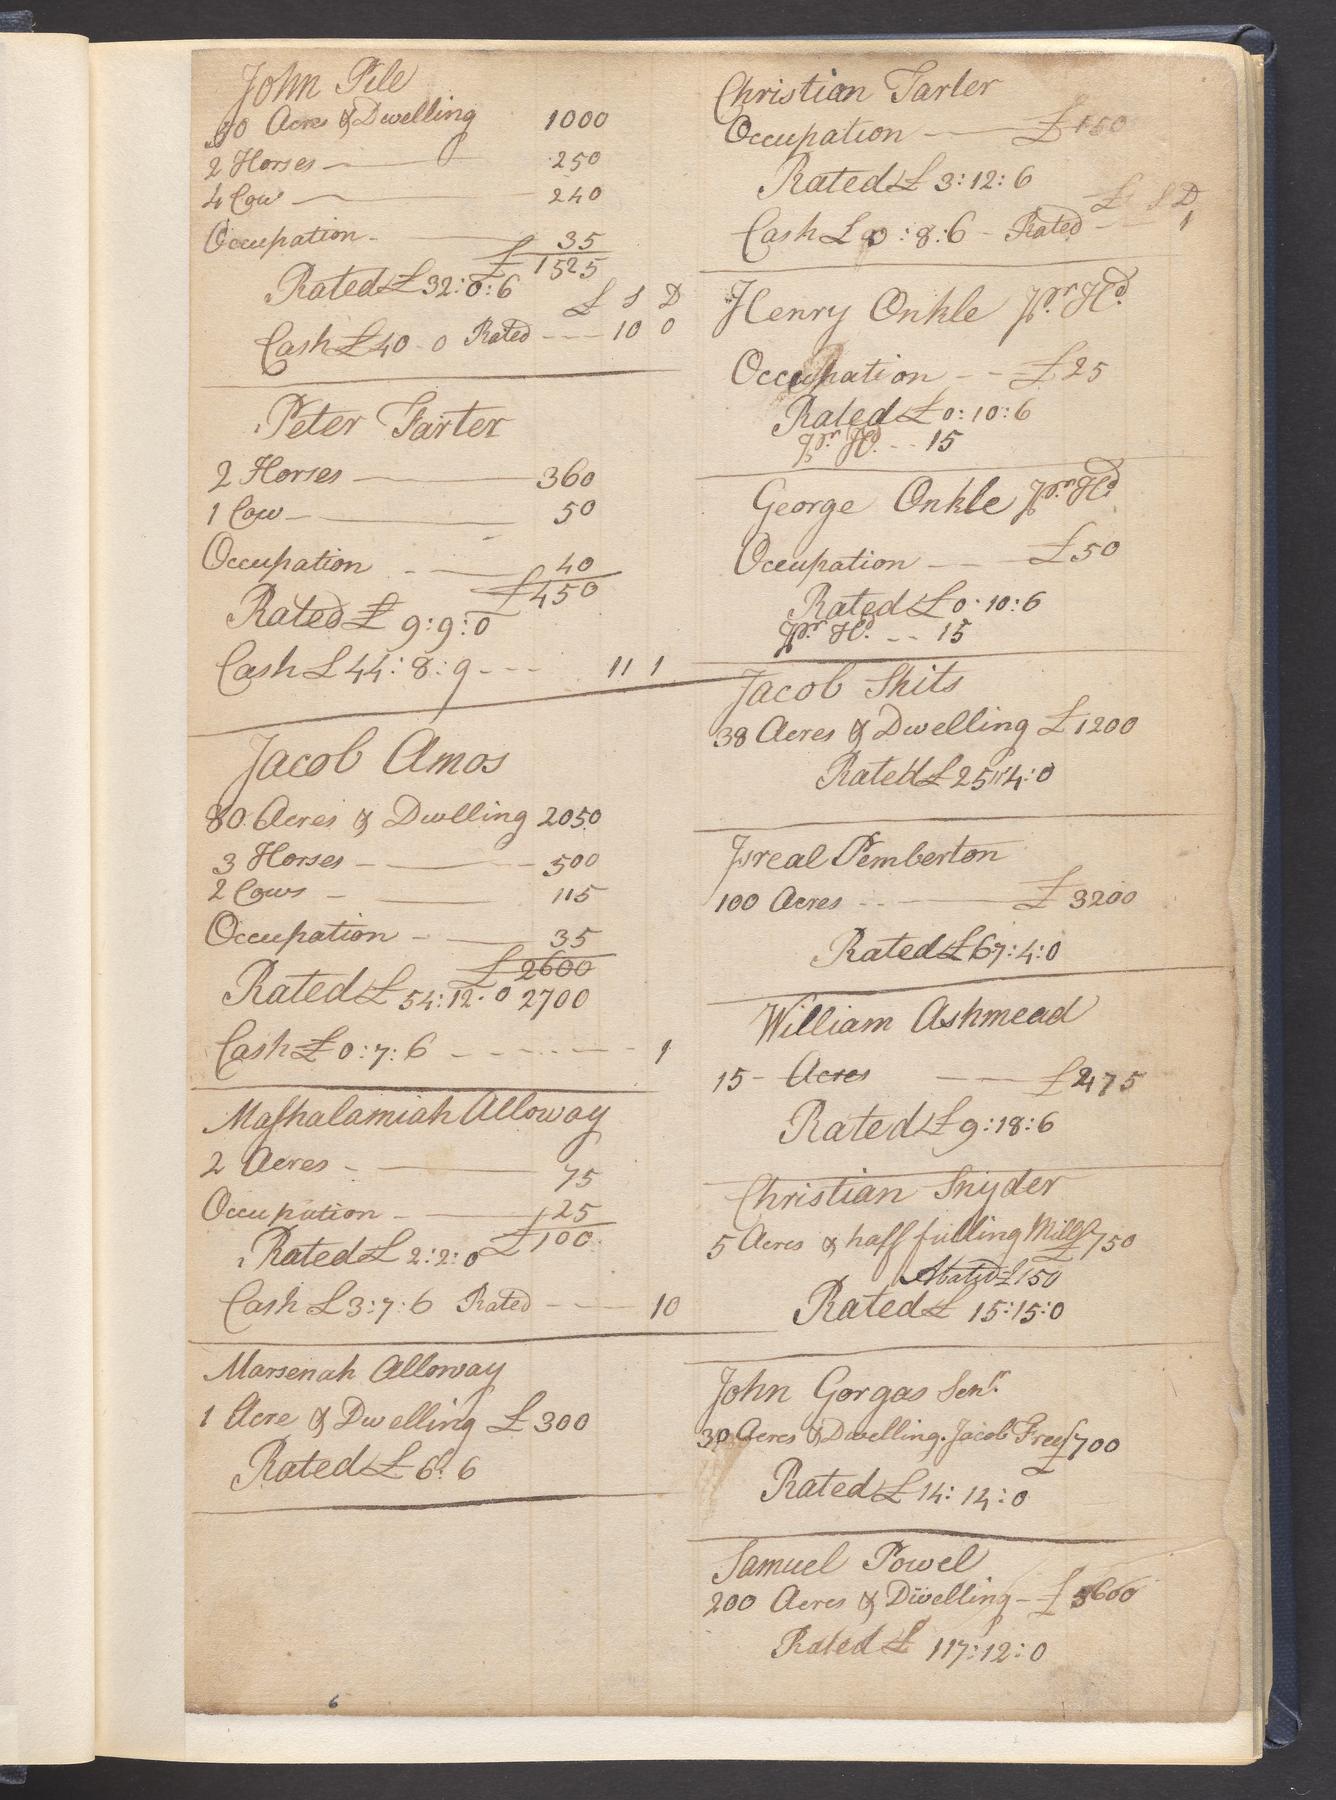 John Pile
30 Acres & Dwelling 1000
2 Horses 250
4 Cow 240
Occupation 35
£ 1525
Rated £ 32:0:6
£ S D
Cash £ 40 - 0 Rated 10 0
Peter Tarter
2 Horses 360
1 Cow 50
Occupation 40
£ 450
Rated £ 9:9:0
Cash £ 44:8:9 11 1
Jacob Amos
80 Acres & Dwelling 2050
3 Horses 500
2 Cows 115
Occupation 35
£ 2600
Rated £ 54:12:0 2700
Cash £ 0:7:6 1
Mashalamiah Alloway
2 Acres 75
Occupation 25
£ 100
Rated £ 2:2:0
Cash £ 3:7:6 Rated 10
Marsenah Alloway
1 Acre & Dwelling £ 300
Rated £ 6:6
6
Christian Tarter
Occupation £ 150
Rated £ 3:12:6
£ S D
Cash £ :8:6 - Rated 1
Henry Onkle Pr. Hd
Occupation £ 25
Rated £ 0:10:6
Pr Hd 15
George Onkle Pr Hd
Occupation £ 50
Rated £ 0:10:6
Pr Hd 15
Jacob Shits
38 Acres & Dwelling £ 1200
Rated £ 25:4:0
Isreal Pemberton
100 Acres £ 3200
Rated £ 67:4:0
William Ashmead
15 - Acres £ 475
Rated £ 9:18:6
Christian Snyder
5 Acres & half fulling Mill £ 750
Abated £ 150
Rated £ 15:15:0
John Gorgas Senr.
30 Acres & Dwelling. Jacob Frey £ 700
Rated £ 14:14:0
Samuel Powel
200 Acres & Dwelling - £ 5600
Rated £ 117:12:0